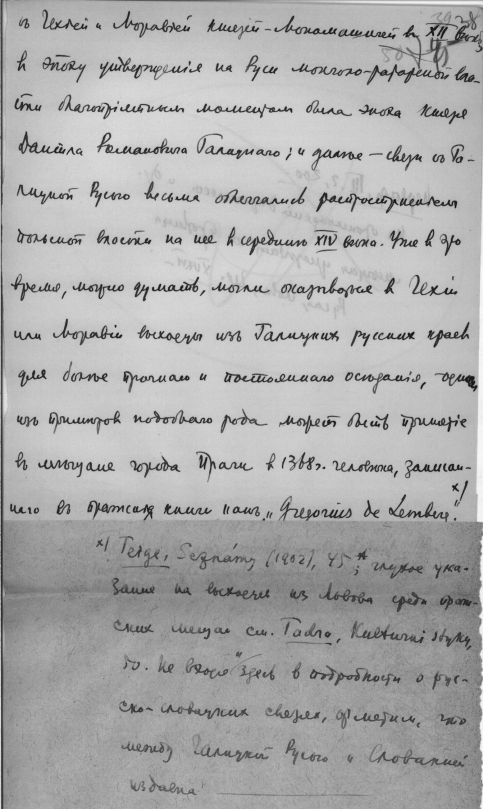 съ Чехіей и Моравіей князей-Мономашичей в XII вѣкѣ
в эпоху утвержденія на Руси монголо-татарской вла-
сти благопріятным моментом была эпоха князя
Даніила Романовича Галицкаго; и далѣе — связи съ Га-
лицкой Русью весьма облегчались распространеніем
польской власти на нее в серединѣ XIV вѣка. Уже в это
время, можно думать, могли оказываться в Чехіи
или Моравіи выходцы изъ Галицких русских краев
для болѣе прочнаго и постояннаго осѣданія, – одним
из примѣров подобнаго рода может быть принятіе
въ мѣщане города Праги в 1368 г. человѣка, записан-
наго въ пражских книгах какъ „Gregorius de Lemberg“. х)
х) Teige, Seznámy (1902), 45; глухое ука-
заніе на выходцев из Львова среди праж-
ских мещан см. Tadra, Kulturní styky,
Не входя здесь в подробности о рус-
ско-словацких связях, отметим, что
между Галицкой Русью и Словакией
издавна